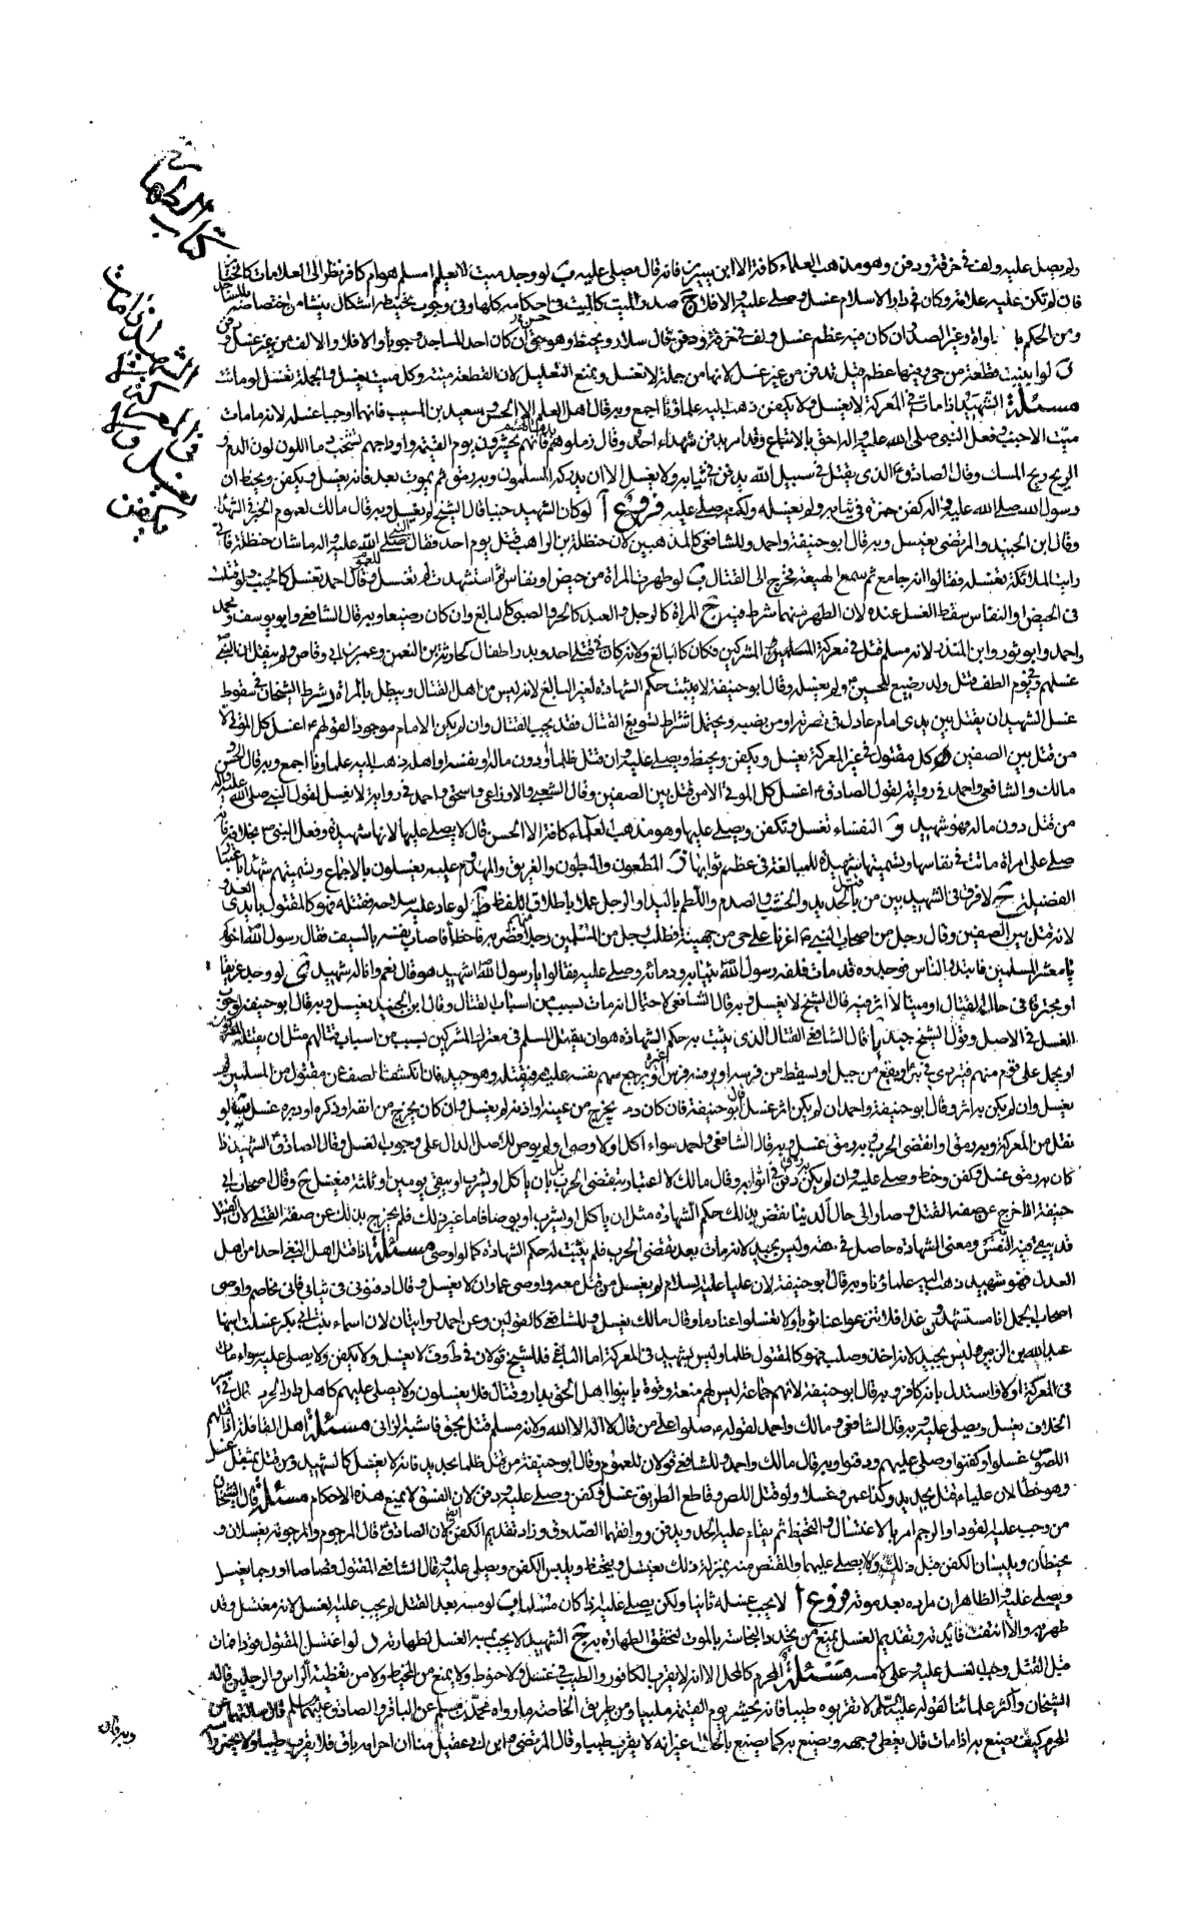 كتاب الطهارة
الشهيد اذا مات
في المعركة لا
يغسل ولا
يكفن
ولم يصل عليه ولف في خرقة ودفن وهو مذهب العلماء كافة الا ابن سيرين فانه قال يصلى عليه ب لو وجد ميت لا يعلم ا مسلم هو ام كافر نظر الى العلامات
فان لم تكن عليه علامة وكان في دار الاسلام غسل وصلي عليه والا فلا ج صدر الميت كالميت في احكامه كلها وفي وجوب تحنيطه اشكال ينشأ من اختصاصه
ومن الحكم با واة وغير الصدر ان كان فيه عظم غسل ولف في خرقة ودفن قال سلار ويحنط وهو حسن ان كان احد المساجد وجوبا والا فلا والا لف من غير غسل ودفن
د لو ابينت قطعة من حي وفيها عظم قيل تدفن من غير غسل لانها من جملة لا تغسل ويمنع التعليل لان القطعة ميتة وكل ميت يغسل والجملة تغسل لو ماتت
مسئلة الشهيد اذا مات في المعركة لا يغسل ولا يكفن ذهب اليه علماؤنا اجمع وبه قال اهل العلم الا الحسن وسعيد بن المسيب فانهما اوجبا غسله لانه ما مات
ميت الا جنب وفعل النبي صلى الله عليه واله احق بالاتباع وقد امر بدفن شهداء احد وقال زملوهم بدمائهم فانهم يحشرون يوم القيمة واوداجهم تشخب دما اللون لون الدم و
الريح ريح المسك وقال الصادق ع الذي يقتل في سبيل الله يدفن في ثيابه ولا يغسل الا ان يدركه المسلمون وبه رمق ثم يموت بعد فانه يغسل ويكفن ويحنط ان
رسول الله صلى الله عليه واله كفن حمزة في ثيابه ولم يغسله ولكنه صلى عليه فروع ا لو كان الشهيد جنبا قال الشيخ لم يغسل وبه قال مالك لعموم الخبر في الشهداء
وقال ابن الجنيد والمرتضى يغسل وبه قال ابو حنيفة واحمد وللشافعي كالمذهبين لان حنظلة بن الراهب قتل يوم احد فقال النبي صلى الله عليه واله ما شان حنظلة فاني
رايت الملائكة تغسله فقالوا انه جامع ثم سمع الهيعة فخرج الى القتال ب لو طهرت المراة من حيض او نفاس ثم استشهدت لم تغسل للعموم وقال احمد تغسل كالجنب ولو قتلت
في الحيض او النفاس سقط الغسل عنده لان الطهر منهما شرط فيه ج المراة كالرجل والعبد كالحر والصبي كالبالغ وان كان رضيعا وبه قال الشافعي وابو يوسف ومحمد
واحمد وابو ثور وابن المنذر لانه مسلم قتل في معركة المسلمين و المشركين فكان كالبالغ ولانه كان في قتلى احد وبدر اطفال كحارثة بن النعمن وعمير بن ابي وقاص ولم ينقل ان النبي
غسلهم وفي يوم الطف قتل ولد رضيع للحسين ولم يغسله وقال ابو حنيفة لا يثبت حكم الشهادة لغير البالغ لانه ليس من اهل القتال ويبطل بالمراة د شرط الشيخان في سقوط
غسل الشهيد ان يقتل بين يدي امام عادل في نصرته او من نصبه ويحتمل اشتراط تسويغ القتال فقد يجب القتال وان لم يكن الامام موجودا لقولهم اغسل كل الموتى الا
من قتل بين الصفين ه كل مقتول في غير المعركة يغسل ويكفن ويحنط ويصلى عليه وان قتل ظلما او دون ماله او نفسه او اهله ذهب اليه علماؤنا اجمع وبه قال الحسن و
مالك والشافعي واحمد في رواية لقول الصادق اغسل كل الموتى الا من قتل بين الصفين وقال الشعبي والاوزاعي واسحق واحمد في رواية لا يغسل لقول النبي صلى الله عليه واله
من قتل دون ماله فهو شهيد و النفساء تغسل وتكفن ويصلى عليها وهو مذهب العلماء كافة الا الحسن قال لا يصلى عليها لانها شهيدة وفعل النبي بخلافه فانه
صلى على امراة ماتت في نفاسها وتسميتها شهيدة للمبالغة في عظم ثوابها ز المطعون والمبطون والغريق والمهدوم عليه يغسلون بالاجماع وتسميتهم شهداء باعتبار
الفضيلة ح لا فرق في الشهيد بين من قتل بالحديد والخشب والصدم واللطم باليد او الرجل عملا باطلاق اللفظ ط لو عاد عليه سلاحه فقتله فهو كالمقتول بايدي العدو
لانه قتل بين الصفين وقال رجل من اصحاب النبي اغرنا على حي من جهينة فطلب رجل من المسلمين رجلا منهم فضربه فاخطأ فاصاب نفسه بالسيف فقال رسول الله اخوكم
يا معشر المسلمين فابتدر الناس فوجدوه قد مات فلفه رسول الله بثيابه ودمائه وصلى عليه فقالوا يا رسول الله اشهيد هو قال نعم وانا له شهيد ي لو وجد غريقا
او محترقا في حال القتال او ميتا لا اثر فيه قال الشيخ لا يغسل وبه قال الشافعي لاحتمال انه مات بسبب من اسباب القتال وقال ابن الجنيد يغسل وبه قال ابو حنيفة لوجوب
الغسل في الاصل وقول الشيخ جيد يا قال الشافعي القتال الذي يثبت به حكم الشهادة هو ان يقتل المسلم في معترك المشركين بسبب من اسباب قتالهم مثل ان يقتله المشركون
او يحمل على قوم منهم فيتردى في بئر او يقع من جبل او يسقط من فرسه او يرفسه فرس او يرجع سهم نفسه عليه فيقتله وهو جيد فان انكشف الصف عن مقتول من المسلمين لم
يغسل وان لم يكن به اثر وقال ابو حنيفة واحمد ان لم يكن اثر غسل قال ابو حنيفة فان كان دم يخرج من عينه او اذنه لم يغسل وان كان يخرج من انفه او ذكره او دبره غسل يب لو
نقل من المعركة وبه رمق او انقضى الحرب وبه رمق غسل وبه قال الشافعي واحمد سواء اكل او لا وصى او لم يوص للاصل الدال على وجوب الغسل وقال الصادق الشهيد اذا
كان به رمق غسل وكفن وحنط وصلي عليه وان لم يكن به رمق دفن في اثوابه وقال مالك لا اعتبار بتقضي الحرب بل بان ياكل او يشرب او يبقى يومين او ثلثة فيغسل ح وقال اصحاب ابي
حنيفة اذا خرج عن صفة القتلى وصار الى حال الدنيا نقض بذلك حكم الشهادة مثل ان ياكل او يشرب او يوصى فاما غير ذلك فلم يخرج بذلك عن صفة القتلى لان القتيل
قد يبقى فيه النفس ومعنى الشهادة حاصل في حقه وليس بجيد لانه مات بعد تقضي الحرب فلم يثبت له حكم الشهادة كما لو اوصى مسئلة اذا قتل اهل البغي احدا من اهل
العدل فهو شهيد ذهب اليه علماؤنا وبه قال ابو حنيفة لان عليا عليه السلام لم يغسل من قتل معه واوصى عمار ان لا يغسل وقال ادفنوني في ثيابي فاني مخاصم واوصى
اصحاب الجمل انا مستشهدون غدا فلا تنزعوا عنا ثوبا ولا تغسلوا عنا دما وقال مالك يغسل وللشافعي كالقولين وعن احمد روايتان لان اسماء بنت ابي بكر غسلت ابنها
عبد الله بن الزبير وليس بجيد لانه اخذ وصلب فهو كالمقتول ظلما وليس بشهيد في المعركة اما الباغي فللشيخ قولان في ط وف لا يغسل ولا يكفن ولا يصلى عليه سواء مات
في المعركة او لا واستدل بانه كافر وبه قال ابو حنيفة لانهم جماعة ليس لهم منعة وقوة باينوا اهل الحق بدار وقتال فلا يغسلون ولا يصلى عليهم كاهل دار الحرب قال في سير
الخلاف يغسل ويصلى عليه وبه قال الشافعي ومالك واحمد لقوله صلوا على من قال لا اله الا الله ولانه مسلم قتل بحق فاشبه الزاني مسئلة اهل القافلة اذا قتلهم
اللصوص غسلوا وكفنوا وصلي عليهم ودفنوا وبه قال مالك واحمد وللشافعي قولان للعموم وقال ابو حنيفة من قتل ظلما بحديد فانه لا يغسل كالشهيد ومن قتل بمثقل غسل
وهو خطأ لان عليا قتل بحديد وكذا عمر وغسلا ولو قتل اللص وقاطع الطريق غسل وكفن وصلي عليه ودفن لان الفسق لا يمنع هذه الاحكام مسئلة قال الشيخان
من وجب عليه القود او الرجم امر بالاغتسال والتحنيط ثم يقام عليه الحد ويدفن ووافقهما الصدوق وزاد تقديم الكفن ايضا لان الصادق قال المرجوم والمرجومة يغسلان و
يحنطان ويلبسان الكفن قبل ذلك ويصلى عليهما والمقتص منه بمنزلة ذلك يغتسل ويتحنط ويلبس الكفن ويصلى عليه وقال الشافعي المقتول قصاصا او رجما يغسل
ويصلى عليه والظاهر ان مراده بعد موته فروع ا لا يجب غسله ثانيا ولكن يصلى عليه اذا كان مسلما ب لو مسه بعد القتل لم يجب عليه الغسل لانه مغتسل وقد
طهر به والا انتفت فائدته وتقديم الغسل يمنع من تجدد النجاسة بالموت لتحقق الطهارة به ج الشهيد لا يجب بمسه الغسل لطهارته د لو اغتسل المقتول قودا فمات
قبل القتل وجب الغسل عليه وعلى لامسه مسئلة المحرم كالمحل الا انه لا يقرب الكافور والطيب في غسل ولا حنوط ولا يمنع من المخيط ولا من تغطية الراس والرجلين قاله
الشيخان واكثر علمائنا لقوله عليه السلام لا تقربوه طيبا فانه يحشر يوم القيمة ملبيا ومن طريق الخاصة ما رواه محمد بن مسلم عن الباقر والصادق عليهما السلام قال سالتهما عن
المحرم كيف يصنع به اذا مات قال يغطى وجهه ويصنع به كما يصنع بالحلال غير انه لا يقرب طيبا وقال المرتضى وابن ابي عقيل منا ان احرامه باق فلا يقرب طيبا ولا يخمر راسه
وبه قال